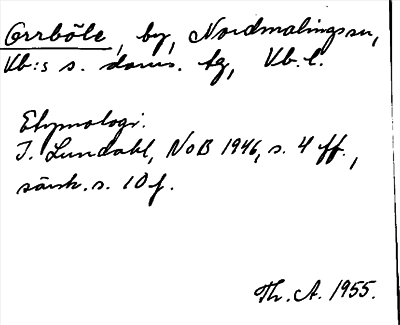 Orrböle, by, Nordmalings sn,
Vb:s s. doms. tg, Vb. l.
Etymologi.
I. Lundahl, NoB 1946, s. 4 ff.,
särsk. s. 10 f.
Th. A. 1955.